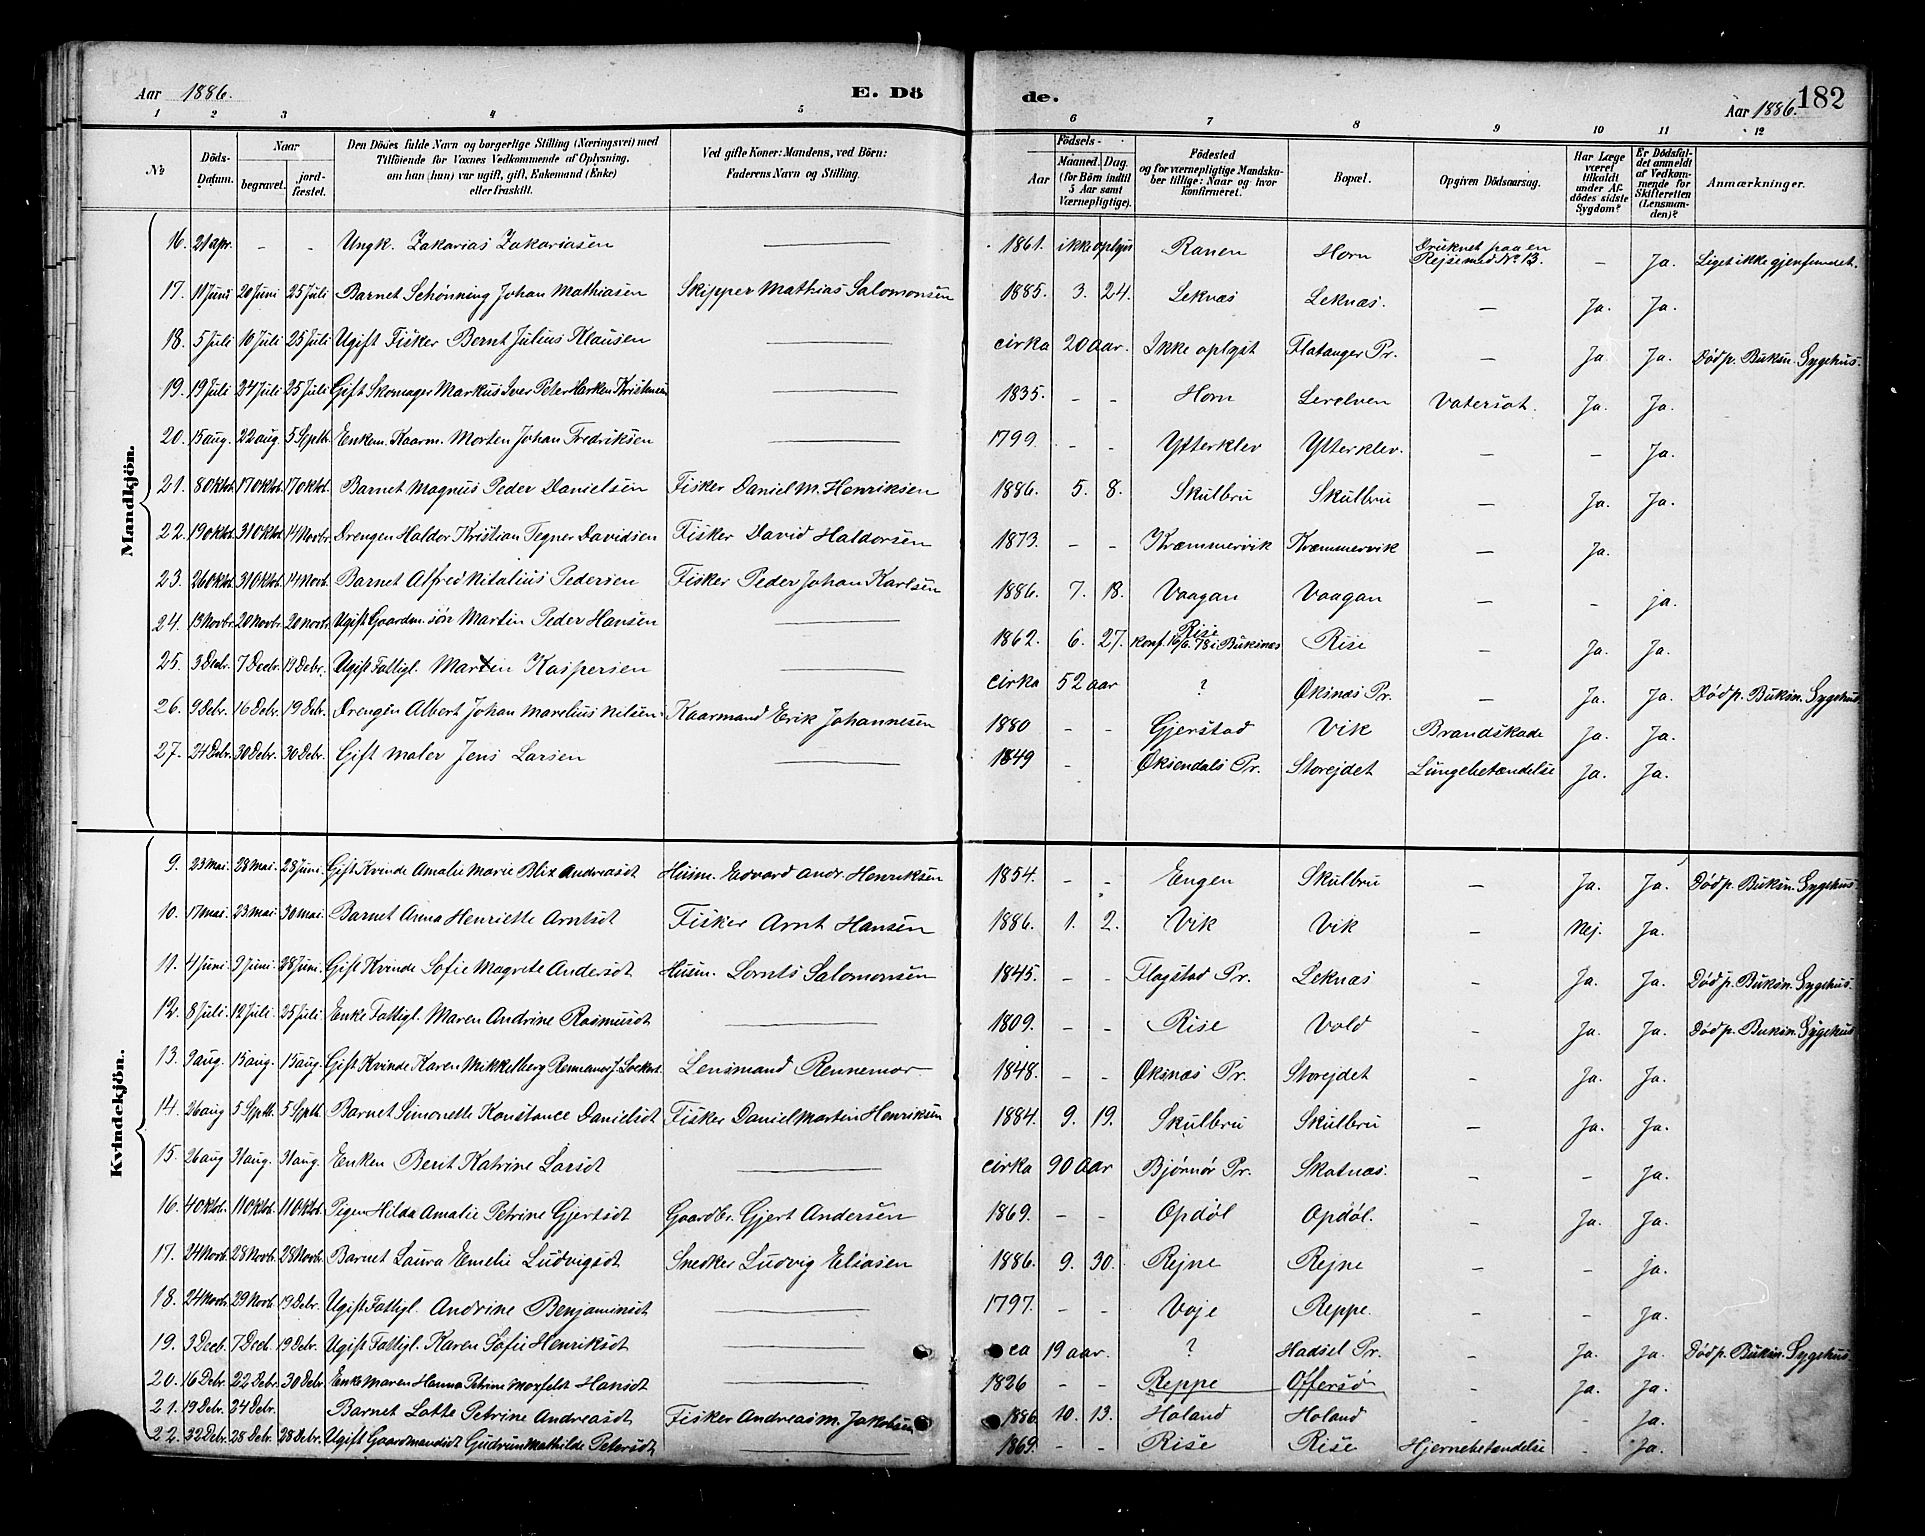 Aar 1886. E. Dö de. Aar 1886. 182
1 2 3 4 5 6 7 8 9 10 11 12
№ Döds-Datum. Naar begravet. jordfæstet. Den Dödes fulde Navn og borgerlige Stilling (Næringsvei) med Tilföiende for Voxnes Vedkommende af Oplysning, om han (hun) var ugift, gift, Enkemand (Enke) eller fraskilt. Ved gifte Koner: Mandens, ved Börn: Faderens Navn og Stilling. Födsels- Aar Maaned. Dag. (for Börn indtil 5 Aar samt Værnepligtige). Födested og for værnepligtige Mandskaber tillige: Naar og hvor konfirmeret. Bopæl. Opgiven Dödsaarsag. Har Læge været tilkaldt under Afdödes sidste Sygdom? Er Dödsfaldet anmeldt af Vedkommende for Skifteretten (Lensmanden)? Anmærkninger.
Mandkjön.
16. 21 apr. - - Ungk. Zakarias Zakariasen — 1861. ikke oplyst Ranen Horn Druknet paa en Rejse med No 13. - Ja. Liget ikke gjenfundet.
17. 11 Juni 20 Juni 25 Juli Barnet Schønning Johan Mathiasen Skipper Mathias Salomonsen 1885. 3. 24. Leknæs Leknæs. - Ja. Ja.
18. 5 Juli 10 Juli 25 Juli Ugift Fisker Bernt Julius Klausen — cirka 20 aar. Ikke oplyst Flatanger Pr. - Ja. Ja. Død p. Buksn. Sygehus.
19. 19 Juli 24 Juli 25 Juli Gift Skomager Markus Iver Peter Harken Kristensen — 1835. - - Horn Lerelven Vatersot. Ja. Ja.
20. 15 aug. 22 aug. 5 Septb. Enkem. Kaarm. Morten Johan Fredriksen — 1799. - - Ytterklev Ytterklev. - - Ja.
21. 8 Oktob. 17 Oktob. 17 Oktob. Barnet Magnus Peder Danielsen Fisker Daniel M. Henriksen 1886. 5. 8. Skulbru Skulbru - Ja. Ja.
22. 19 Oktob. 31 Oktob. 14 Novbr. Drengen Haldor Kristian Tegner Davidsen Fisker David Haldorsen 1873. - - Kræmmervik Kræmmervik - Ja.
23. 26 Oktob. 31 Oktob. 14 Novb. Barnet Alfred Nitalius Pedersen Fisker Peder Johan Karlsen 1886. 7. 18. Vaagan Vaagan - - ja.
24. 13 Novbr. 20 Novbr. 20 Novbr. Ugift Gaardm. søn Martin Peder Hansen — 1862. 6. 27. Rise konf. 16/6.78 i Buksnæs Rise - Ja. Ja.
25. 3 Decbr. 7 Decbr. 19 Debr. Ugift Fattigl. Martin Kaspersen — cirka 52 aar ? Øksnæs Pr. - Ja. Ja. Død p. Buksn. Sygehus
26. 9 Debr. 16 Debr. 19 Debr. Drengen Albert Johan Marelius Nilsen. Kaarmand Erik Johannesen 1880 - - Gjerstad Vik Brandskade Ja. Ja.
27. 24 Debr. 30 Debr. 30 Debr. Gift maler Jens Larsen — 1849 - Øksendals Pr. Storejdet Lungebetændelse Ja. Ja.
Kvindekjön.
9. 23 Mai. 28 Mai. 28 Juni. Gift Kvinde Amalie Marie Blix Andreasdt Husm. Edvard Andr. Henriksen 1854. - - Engen Skulbru - Ja. Ja. Død p. Buksn. Sygehus.
10. 17 Mai. 23 Mai 30 Mai. Barnet Anna Henriette Arntsdt Fisker Arnt Hansen 1886. 1. 2. Vik Vik - Nej. Ja.
11. 4 Juni 9 Juni 28 Juni. Gift Kvinde Sofie Magrete Andersdt Husm. Lornts Salomonsen 1845. - - Flagstad Pr. Leknæs - Ja. Ja. Død p. Buksn. Sygehus.
12. 8 Juli. 12 Juli. 25 Juli Enke Fattigl. Maren Andrine Rasmusdt — 1809. - - Rise Vold - Ja. Ja. Død p. Buksn. Sygehus
13. 9 aug. 15 aug. 15 aug. Gift Kvinde Karen Mikkelberg Rennemo f. Lockert. Lensmand Rennemo. 1848. - - Øksnæs Pr. Storejdet - Ja. Ja.
14. 26 aug 5 Septb. 5 Septb. Barnet Simonette Konstance Danielsdt Fisker Daniel Martin Henriksen 1884. 9. 19. Skulbru Skulbru - Ja. Ja.
15. 26 aug 31 aug. 31 aug. Enken Berit Katrine Larsdt — cirka 90 aar Bjørnør Pr. Skatnæs. - - Ja.
16. 4 Oktob. 11 Oktob. 11 Oktob. Pigen Hilda Amalie Petrine Gjertsdt Gaardbr. Gjert Andersen 1869. - - Opdøl Opdøl. - Ja. Ja.
17. 24 Novb. 28 Novb. 28 Novbr. Barnet Laura Emelie Ludvigsdt Snedker Ludvig Eliasen 1886. 9. 30. Rejne Rejne - - ja.
18. 24 Novb. 29 Novb. 19 Debr. Ugift Fattigl. Andrine Benjaminsdt — 1797. - - Voje Reppe. - - Ja.
19. 3 Decb. 7 Decb. 19 Debr. Ugift Fattigl. Karen Sofie Henriksdt — ca 19 aar. ? Hadsel Pr. - Ja. Ja. Død p. Buksn. Sygehus.
20. 16 Debr. 22 Debr. 30 Debr. Enke Maren Hanna Petrine Moxfeldt Hansdt — 1826 - - Reppe Offersø - Ja. Ja.
21. 19 Debr. 24 Debr. Barnet Lotte Petrine Andreasdt Fisker Andreas M. Jakobsen 1886. 10. 13. Holand Holand - - Ja.
22. 32 Debr. 28 Debr. 28 Debr. Ugift Gaardmandsdt Gudrun Mathilde Petersdt — 1869. - - Rise Rise Hjernebetændelse - Ja.